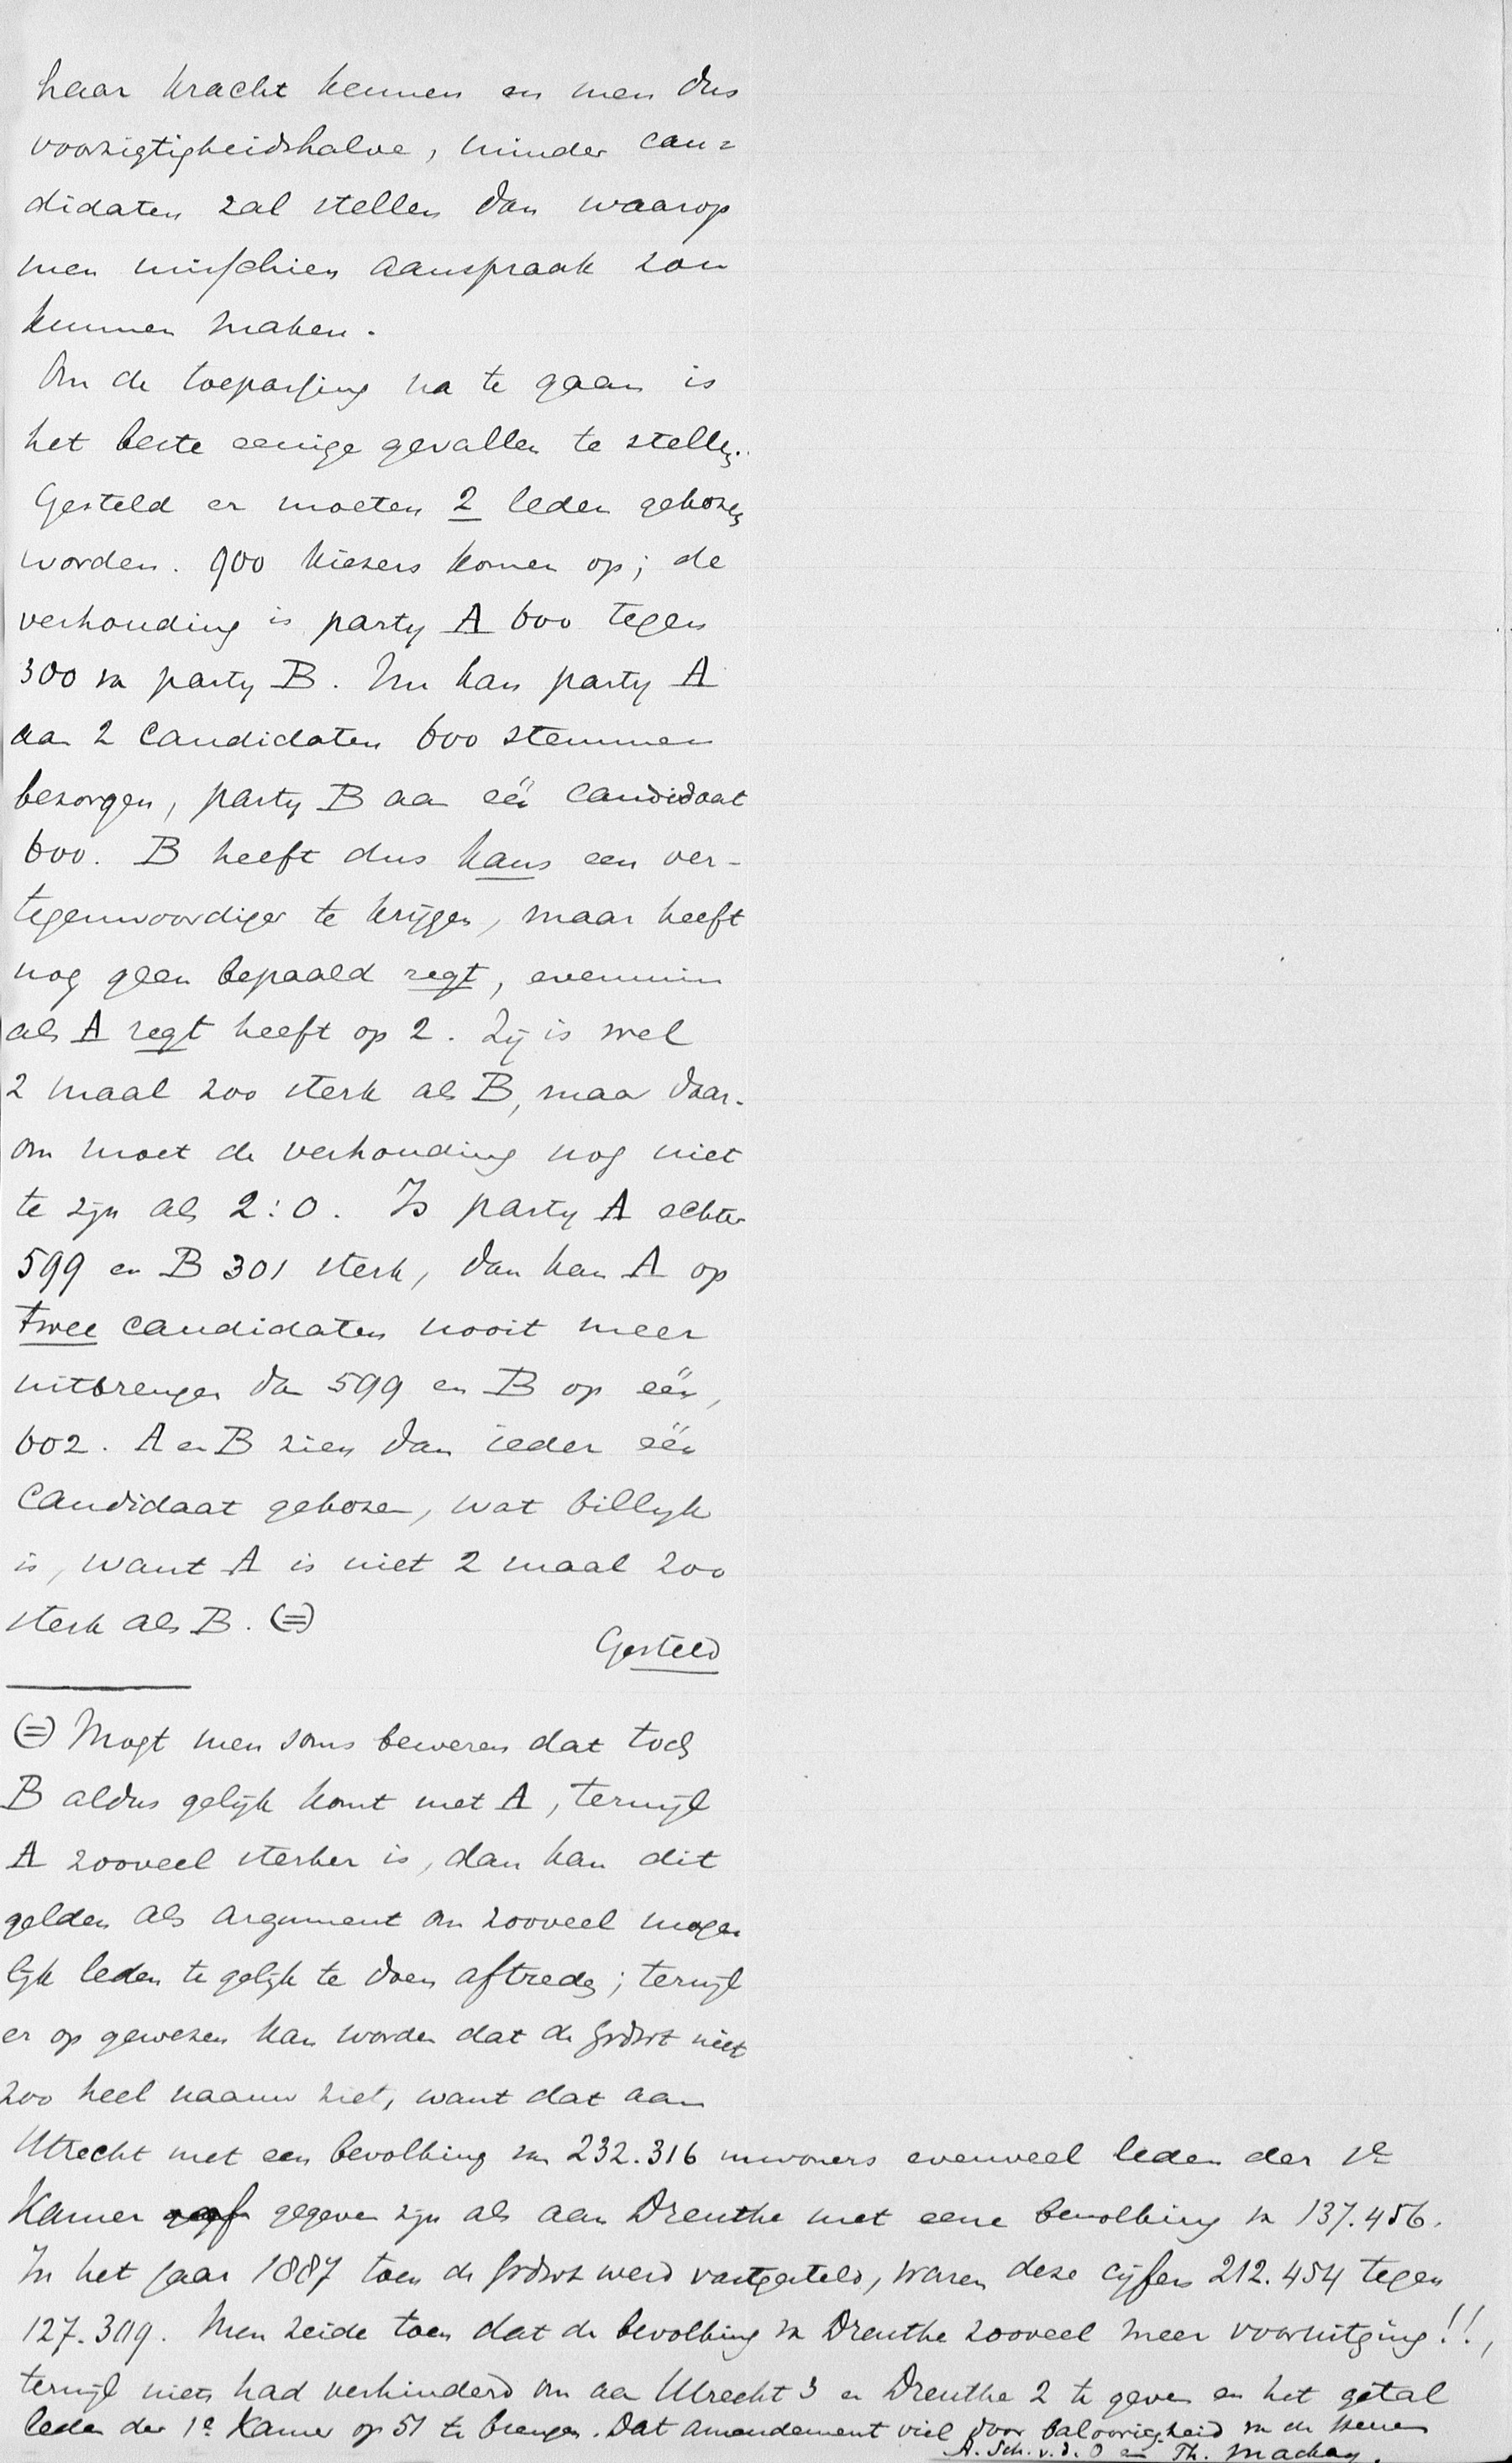 haar kracht kennen en men dus
voorzigtigheidshalve, minder can=
didaten zal stellen dan waarop
men misschien aanspraak zou
kunnen maken.
Om de toepassing na te gaan is
het beste eenige gevallen te stellen.
Gesteld er moeten 2 leden gekozen
worden. 900 kiezers komen op; de
verhouding is party A 600 tegen
300 van party B. Nu kan party A
aan 2 candidaten 600 stemmen
bezorgen, party B aan één candidaat
600. B heeft dus kans een ver-
tegenwoordiger te krijgen, maar heeft
nog geen bepaald regt, evenmin
als A regt heeft op 2. Zij is wel
2 maal zoo sterk als B, maar daar-
om moet de verhouding nog niet
te zijn als 2:0. Is party A echter
599 en B 301 sterk, dan kan A op
twee candidaten nooit meer
uitbrengen dan 599 en B op één,
602. A en B zien dan ieder één
candidaat gekozen, wat billyk
is, want A is niet 2 maal zoo
sterk als B. (=)
Gesteld
(=) Mogt men soms beweren dat toch
B aldus gelijk komt met A, terwijl
A zooveel sterker is, dan kan dit
gelden als argument om zooveel moge
lijk leden te gelijk te doen aftreden; terwijl
er op gewezen kan worden dat de grdwt niet
zoo heel naauw ziet, want dat aan
Utrecht met een bevolking van 232.316 inwoners evenveel leden der 1e
Kamer gegeven zijn als aan Drenthe met eene bevolking van 137.456.
In het jaar 1887 toen de grdwt werd vastgesteld, waren deze cijfers 212.454 tegen
127.309. Men zeide toen dat de bevolking van Drenthe zooveel meer vooruitging!!,
terwijl niets had verhinderd om aan Utrecht 3 en Drenthe 2 te geven en het getal
leden der 1e Kamer op 51 te brengen. Dat amendement viel door baloorigheid van de heeren
A. Sch. v. d. O en Th. Mackay.